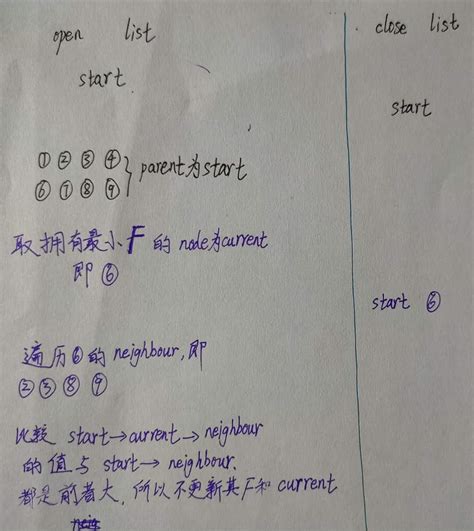 open list
start
①②③④
⑥⑦⑧⑨
parent为start
取拥有最小F的node为current
即⑥
遍历⑥的neighbour,即
②③⑧⑨
比较 start→current→neighbour
的值与 start→ neighbour.
都是前者大,所以不更新其F和current
close list
start
start ⑥